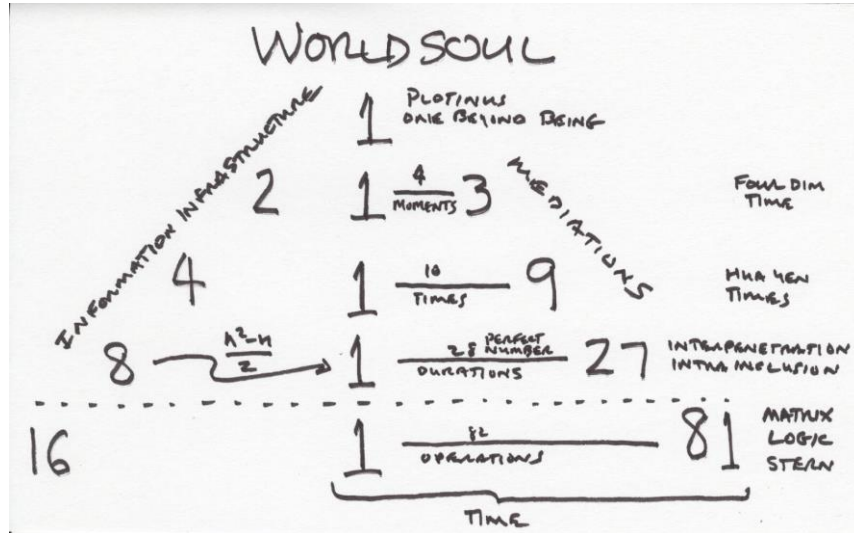 WORLDSOUL
INFORMATION INFRASTRUCTURE
MEDIATIONS
1 PLOTINUS
ONE BEYOND BEING
2 1 4 MOMENTS 3 FOUR DIM
TIME
4 1 10 TIMES 9 HUA YEN
TIMES
8 n²-n / 2 1 28 PERFECT NUMBER DURATIONS 27 INTERPENETRATION
INTRAINCLUSION
16 1 82 OPERATIONS 81 MATRIX
LOGIC
STERN
TIME